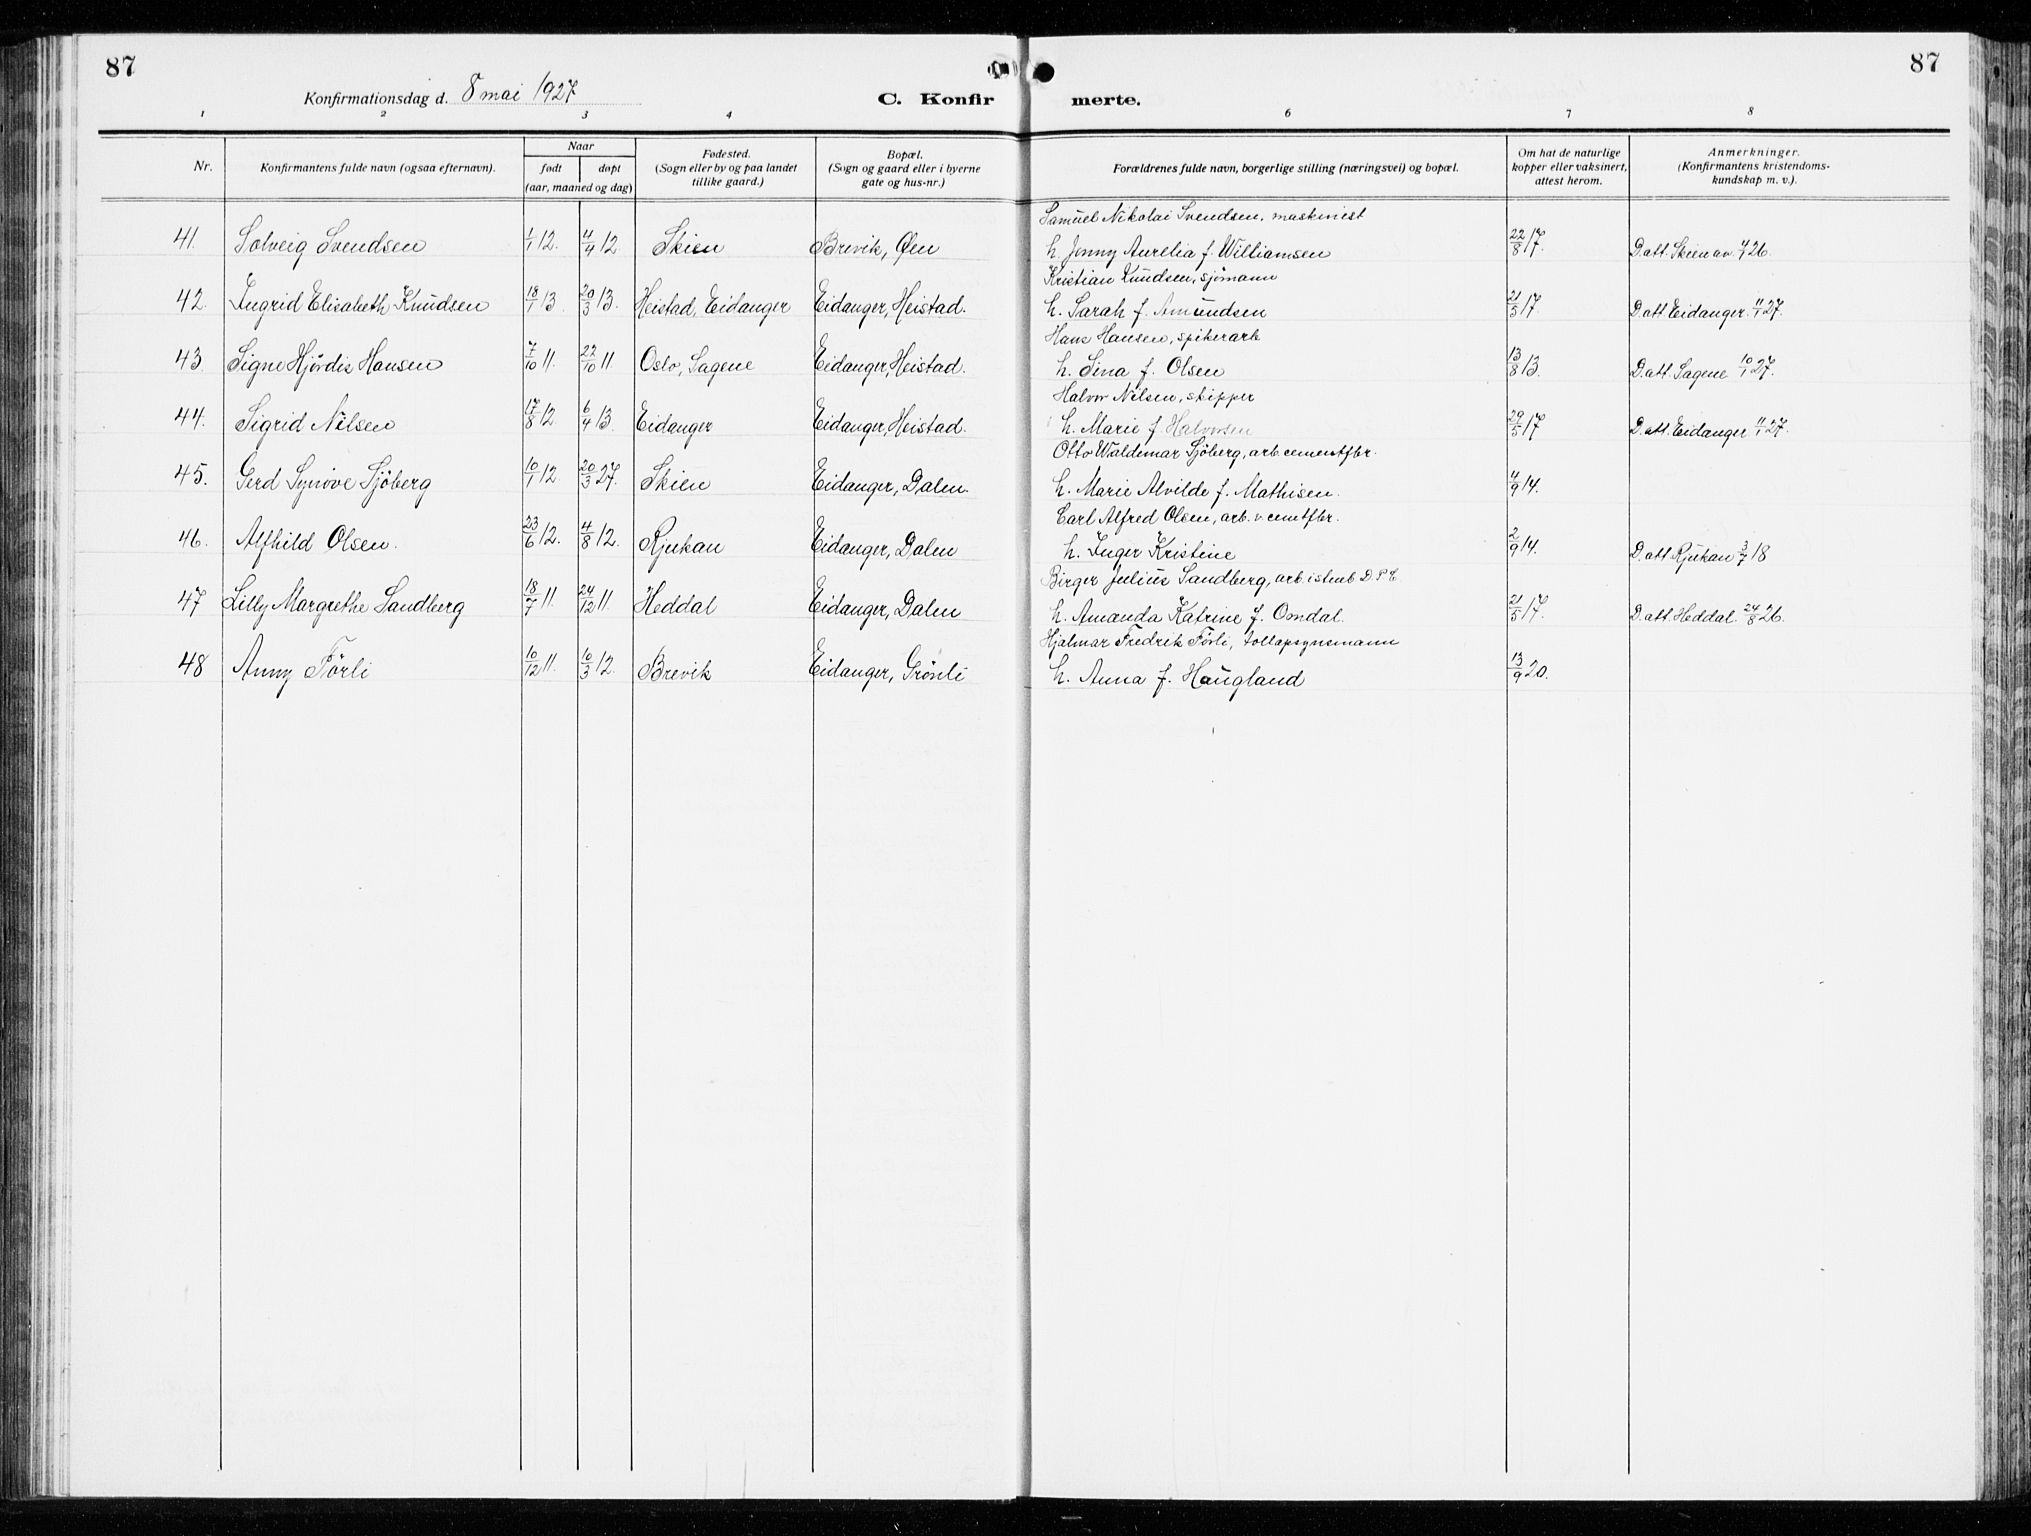 87
87
Konfirmationsdag d. 8 mai 1927
C. Konfir
merte.
1 2 3 4 5 6 7 8
Nr.
Konfirmantens fulde navn (ogsaa efternavn).
Naar
født
døpt
(aar, maaned og dag)
Fødested.
(Sogn eller by og paa landet
tillike gaard.)
Bopæl.
(Sogn og gaard eller i byerne
gate og hus-nr.)
Forældrenes fulde navn, borgerlige stilling (næringsvei) og bopæl.
Om hat de naturlige
kopper eller vaksinert,
attest herom.
Anmerkninger.
(Konfirmantens kristendoms-
kundskap m. v.).
Samuel Nikolai Svendsen, maskinist
41. Solveig Svendsen 1/1 12. 4/4 12. Skien Brevik, Øen h. Jenny Aurelia f. Williamsen 22/8 17. D.att. Skien av 26.
Kristian Knudsen, sjømann
42. Ingrid Elisabeth Knudsen 18/1 13. 20/3 13. Heistad, Eidanger Eidanger, Heistad. h. Sarah f. Amundsen 21/5 17. D.att Eidanger. 11/1 27.
Hans Hansen, spikerarb
43. Signe Hjørdis Hansen 7/10 11. 22/10 11. Oslo, Sagene Eidanger, Heistad. h. Sina f. Olsen 13/8 13. D.att. Sagene 10/1 27.
Halvor Nilsen, skipper
44. Sigrid Nilsen 17/8 12. 6/4 13. Eidanger Eidanger, Heistad. h. Marie f. Halvorsen 29/5 17 D.att. Eidanger 11/1 27.
Otto Waldemar Sjöberg, arb. cementfbr.
45. Gerd Synöve Sjöberg 10/1 12. 20/3 27. Skien Eidanger, Dalen. h. Marie Alvilde f. Mathisen. 4/9 14.
Carl Alfred Olsen, arb. v. cemtfbr.
46. Alfhild Olsen. 23/6 12. 4/8 12. Rjukan Eidanger, Dalen h. Inger Kristine 2/9 14. D.att Rjukan 3/7 18
Birger Julius Sandberg, arb. i stenb D.P.C.
47 Lilly Margrethe Sandberg 18/7 11. 24/12 11. Heddal Eidanger, Dalen h. Amanda Katrine f. Omdal. 21/5 17. D.att. Heddal. 24/8 26.
Hjalmar Fredrik Förli, tollopsynsmann
48 Anny Förli 10/12 11. 10/3 12. Brevik Eidanger, Grönli h. Anna f. Haugland 13/9 20.